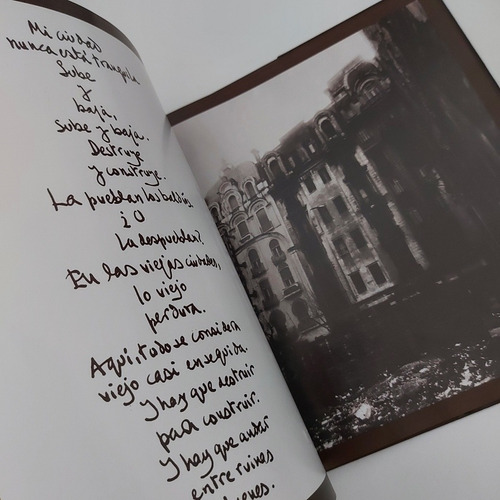 Mi ciudad
nunca está tranquila
Sube
y
baja,
sube y baja.
Destruye
y construye.
La pueblan los baldíos
¿O
la despueblan?
En las viejas ciudades,
lo viejo
perdura.
Aquí, todo se considera
viejo casi enseguida.
Y hay que destruir
para construir.
Y hay que andar
entre ruinas